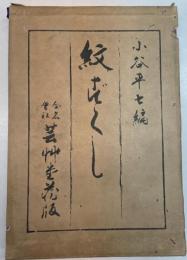 小谷平七編
紋づくし
合名会社
芸艸堂蔵版